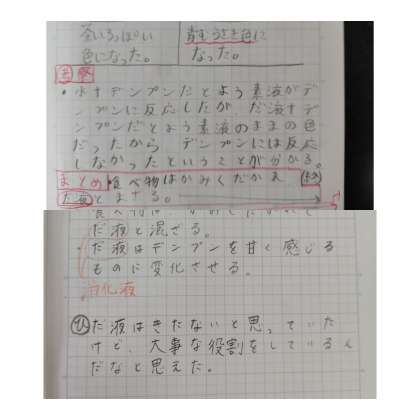 茶いろっぽい
色になった。
青むらさき色に
なった。
考察
・水+デンプンだとよう素液がデ
ンプンに反応したが だ液+デ
ンプンだとよう素液のままの色
だったから デンプンには反応
しなかったということが分かる。
まとめ 食べ物はかみくだかれ
だ液とまざる。
だ液と混ざる。
・だ液はデンプンを甘く感じる
ものに変化させる。
消化液
ひ だ液はきたないと思っていた
けど、大事な役割をしているん
だなと思えた。